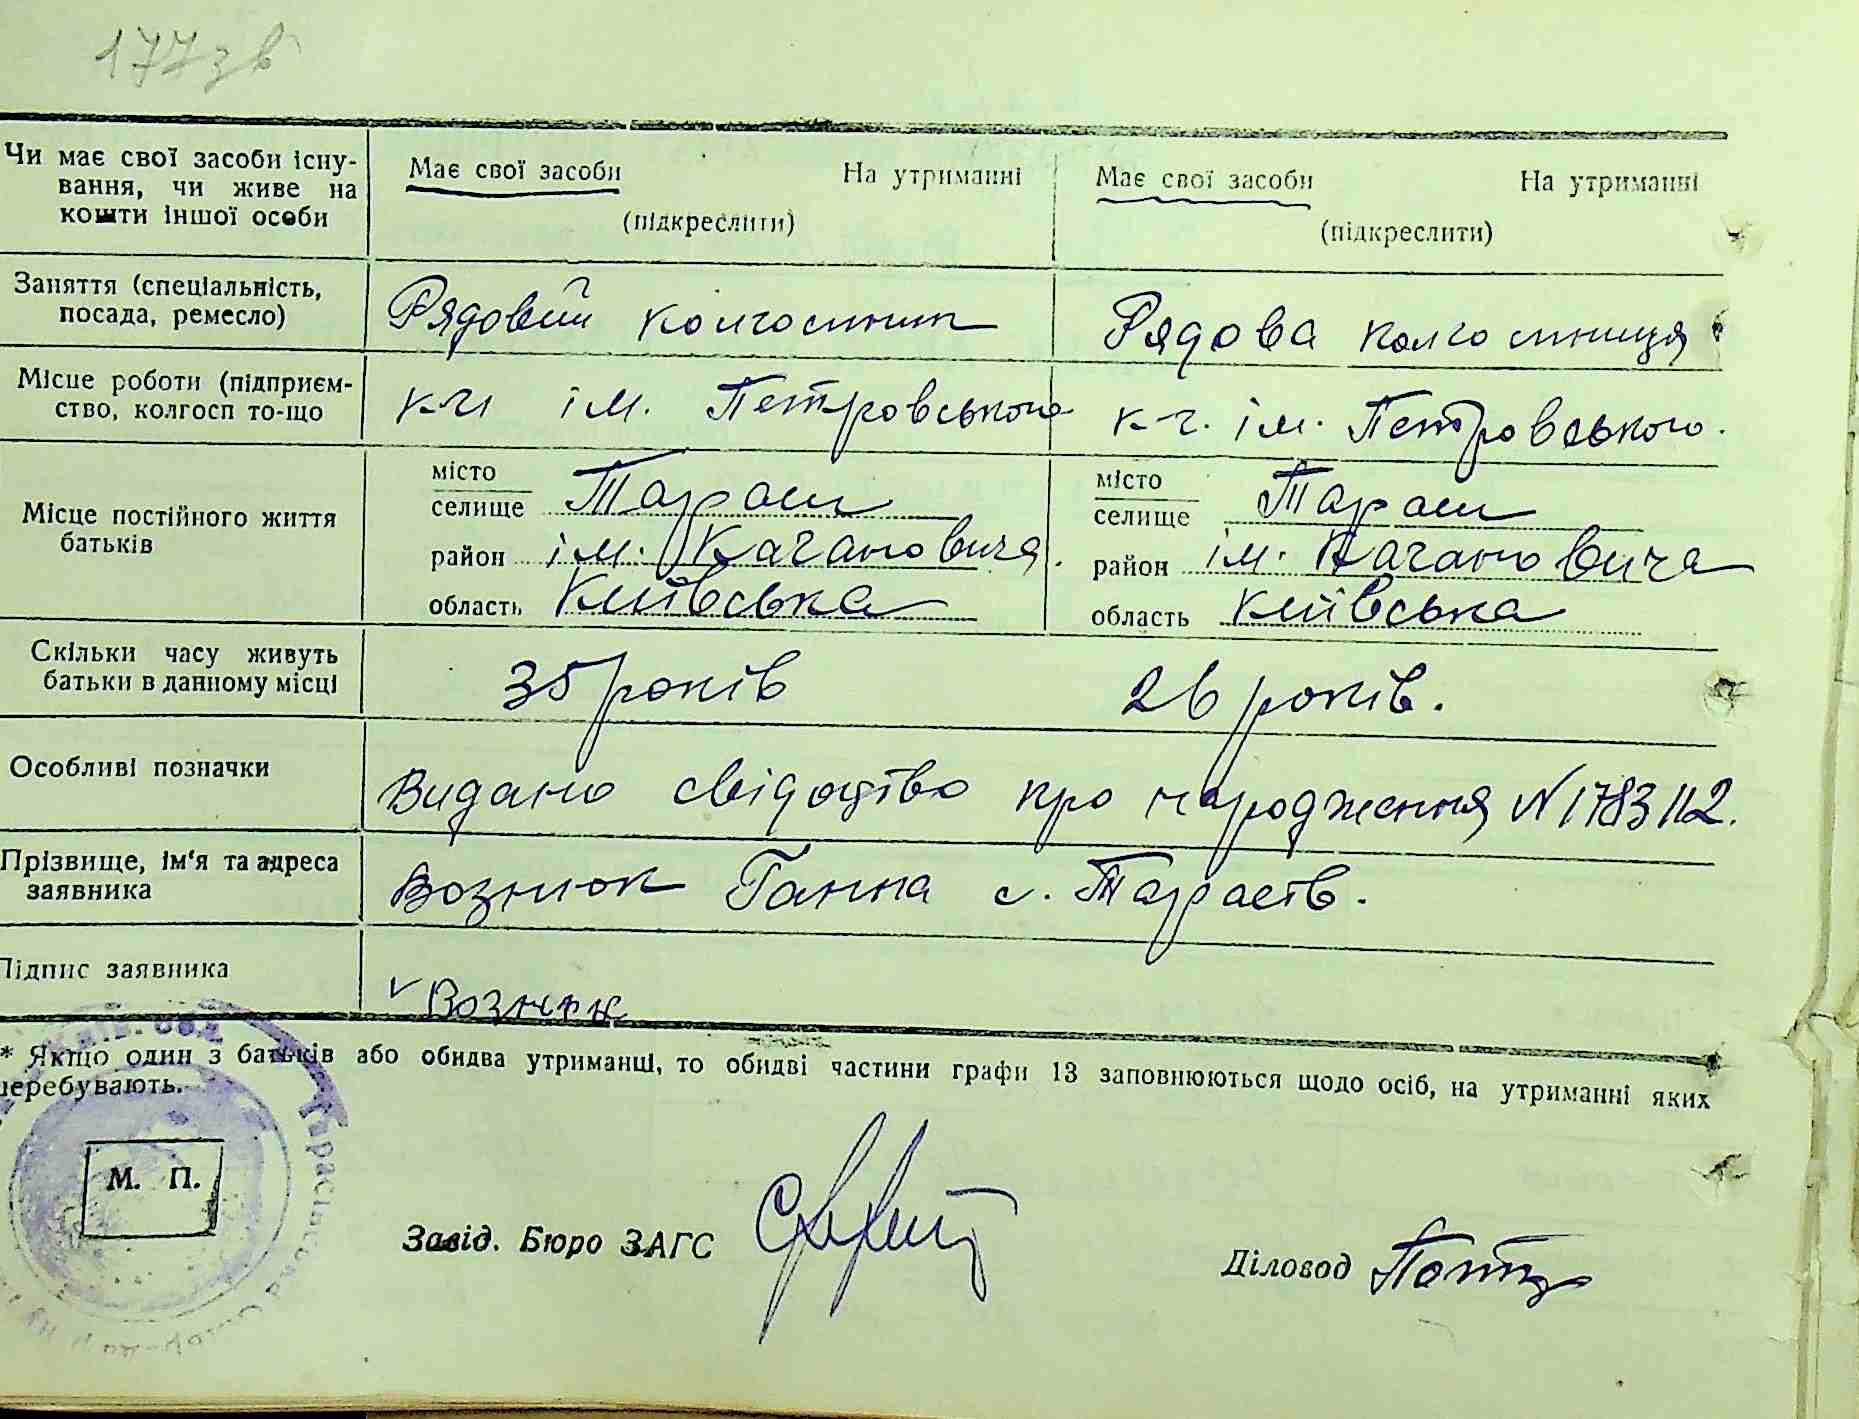 177 зв
Чи має свої засоби існу-
вання, чи живе на
кошти іншої особи
Має свої засоби На утриманні
(підкреслити)
Має свої засоби На утриманні
(підкреслити)
Заняття (спеціальність,
посада, ремесло)
Рядовий колгоспник
Рядова колгоспниця
Місце роботи (підприєм-
ство, колгосп то-що
к-г ім. Петровського
к-г. ім. Петровського.
Місце постійного життя
батьків
місто
селище Тараси
район ім. Кагановича.
область Київська
місто
селище Тараси
район ім. Кагановича
область Київська
Скільки часу живуть
батьки в данному місці
35 років
26 років.
Особливі позначки
Видано свідоцтво про народження N 1783112.
Прізвище, ім'я та адреса
заявника
Вознюк Ганна с.
Підпис заявника
Вознюк
* Якщо один з батьків або обидва утриманці, то обидві частини графи 13 заповнюються щодо осіб, на утриманні яких
перебувають.
М. П.
Завід. Бюро ЗАГС
Діловод